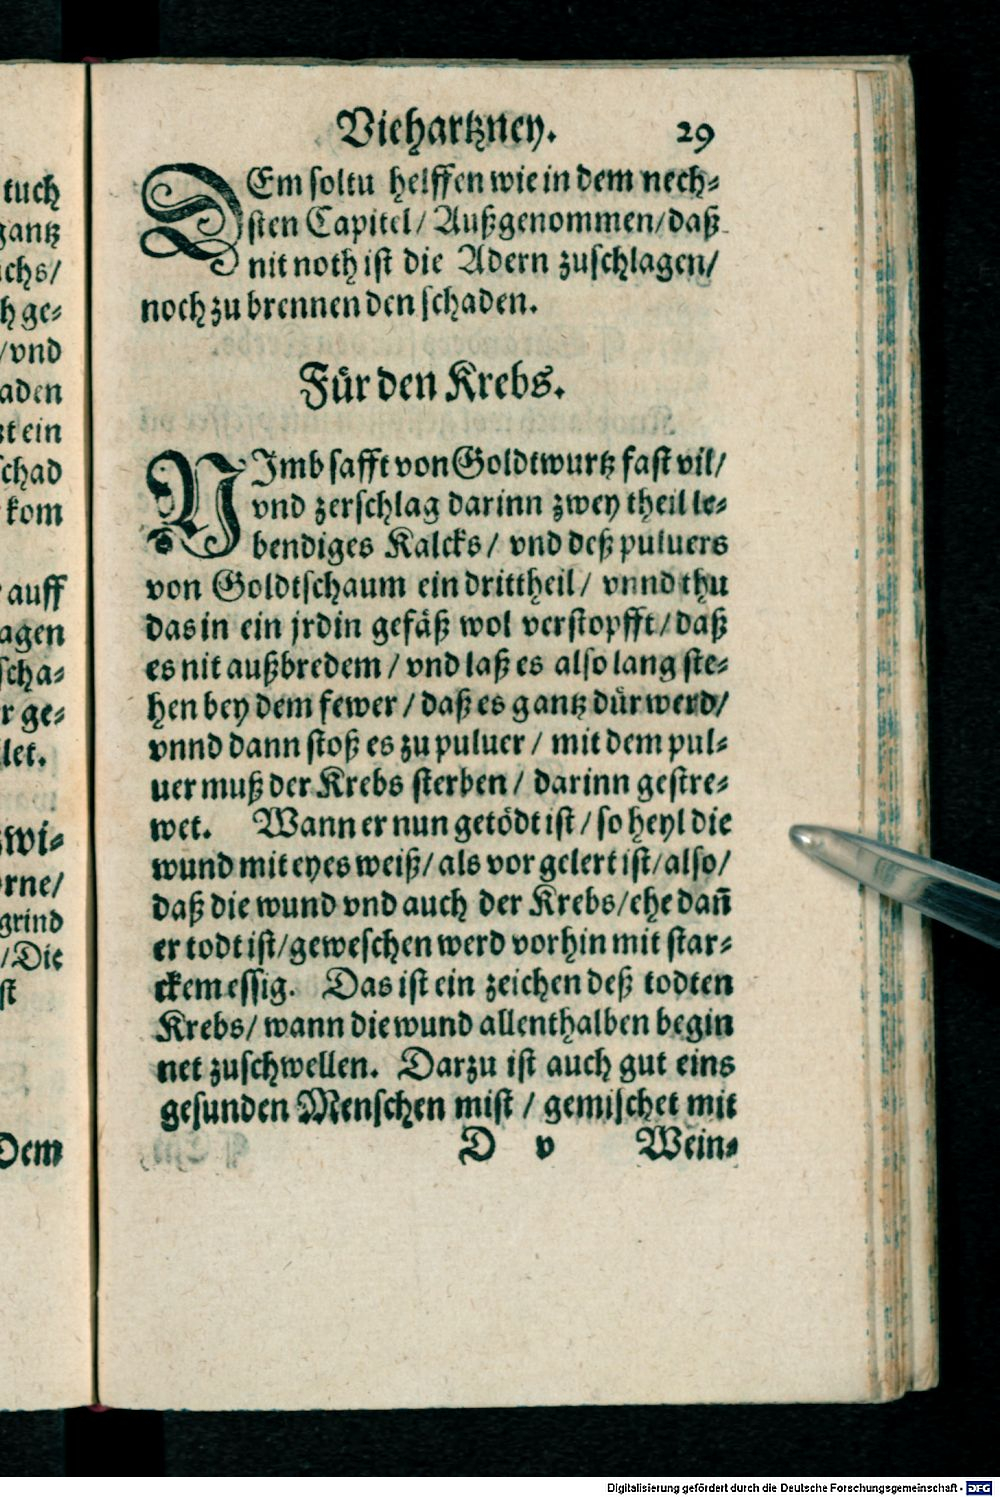 tuch
gantz
ichs/
h ge⸗
/vnd
aden
st ein
schad
kom
auff
agen
scha⸗
r ge⸗
let.
zwi⸗
rne/
grind
/Die
st
Dem
Viehartzney. 29
DEm soltu helffen wie in dem nech⸗
sten Capitel/ Außgenommen/daß
nit noth ist die Adern zuschlagen/
noch zu brennen den schaden.
Für den Krebs.
NImb safft von Goldtwurtz fast vil/
vnd zerschlag darinn zwey theil le⸗
bendiges Kalcks/ vnd deß puluers
von Goldtschaum ein drittheil/ vnnd thu
das in ein jrdin gefäß wol verstopfft/daß
es nit außbredem/ vnd laß es also lang ste⸗
hen bey dem fewer/ daß es gantz dür werd/
vnnd dann stoß es zu puluer/ mit dem pul⸗
uer muß der Krebs sterben/ darinn gestre⸗
wet. Wann er nun getödt ist/ so heyl die
wund mit eyes weiß/ als vor gelert ist/also/
daß die wund vnd auch der Krebs/ehe dañ
er todt ist/geweschen werd vorhin mit star⸗
ckem essig. Das ist ein zeichen deß todten
Krebs/ wann die wund allenthalben begin
net zuschwellen. Darzu ist auch gut eins
gesunden Menschen mist/ gemischet mit
D v Wein⸗
Digitalisierung gefördert durch die Deutsche Forschungsgemeinschaft - DFG